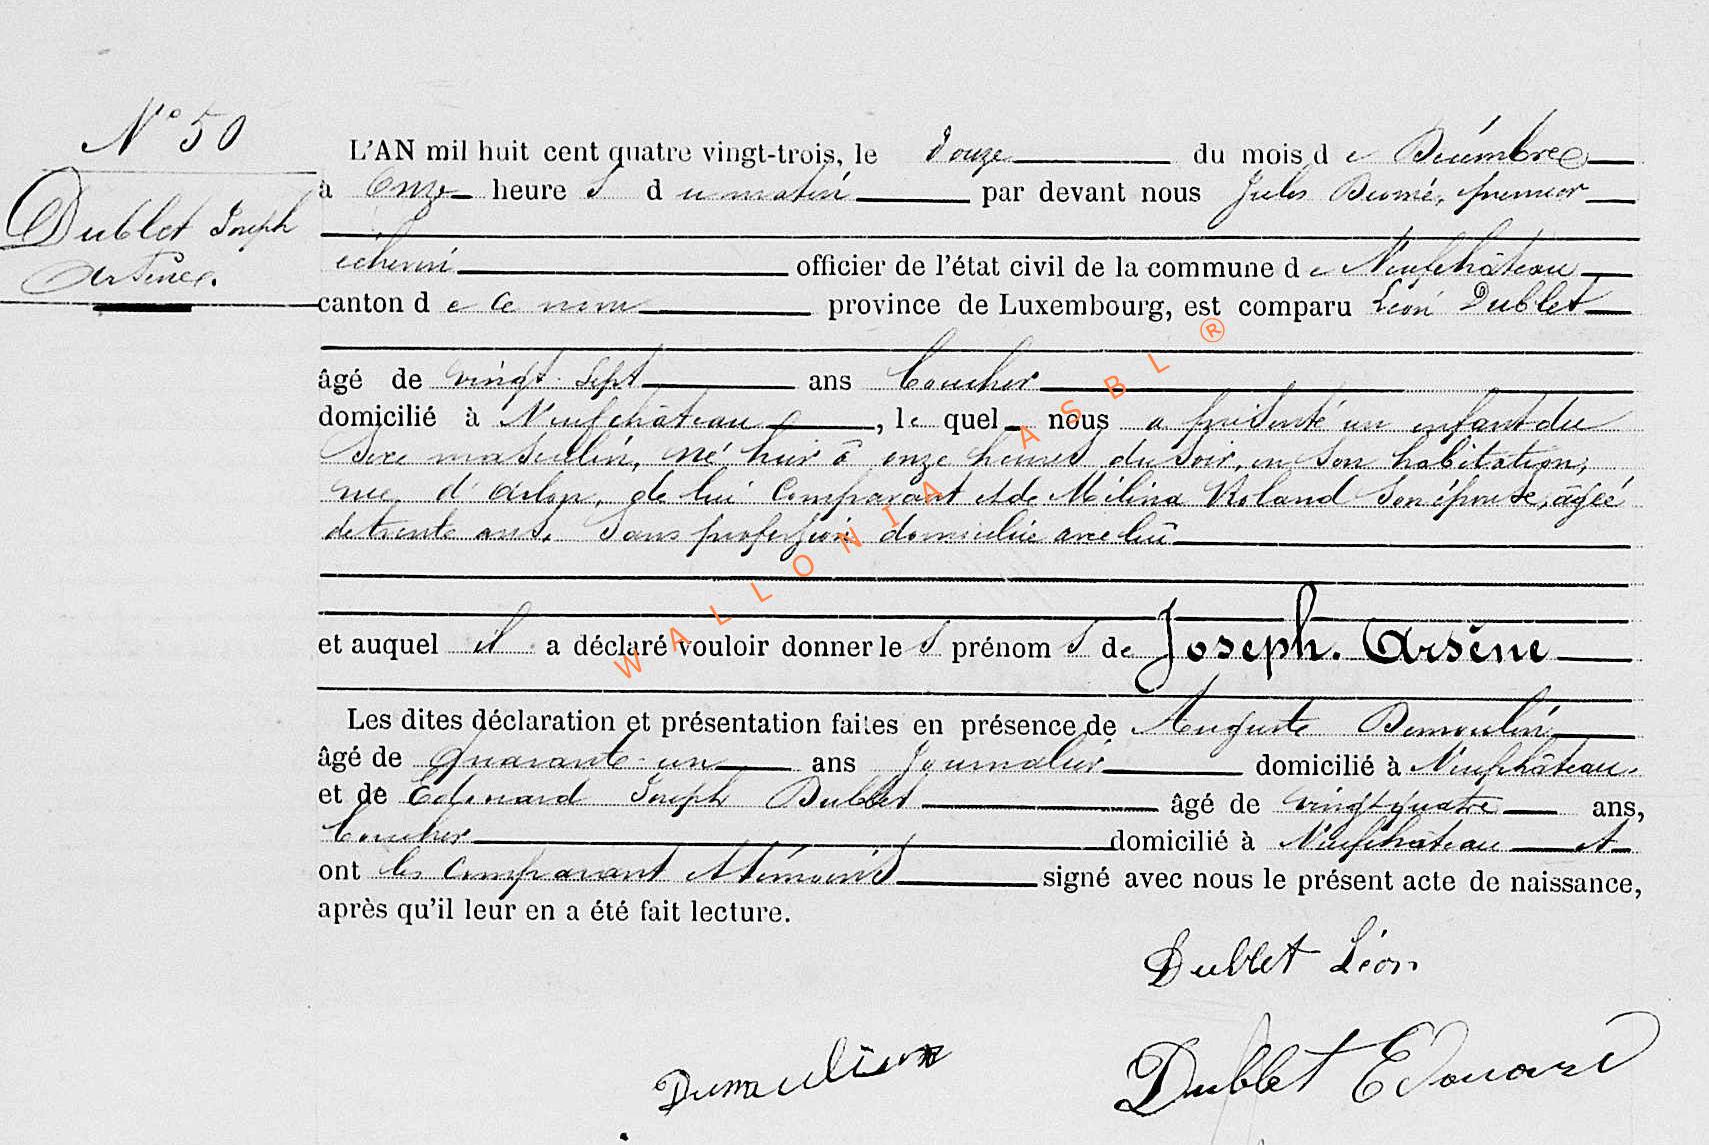 N° 50
Dublet Joseph
Arsène.
L'AN mil huit cent quatre vingt-trois, le douze du mois de Décembre
à Onze heures du matin par devant nous Jules premier
échevin officier de l'état civil de la commune de Neufchâteau
canton de ce nom province de Luxembourg, est comparu Léon Dublet
âgé de vingt-sept ans boucher
domicilié à Neufchâteau, lequel nous a présenté un enfant du
sexe masculin, né hier à onze heures du soir, en son habitation,
rue d'Arlon, de lui comparant et de Mélina Roland son épouse, âgée
de trente ans, sans profession domiciliée avec lui
et auquel il a déclaré vouloir donner les prénoms de Joseph. Arsène
Les dites déclaration et présentation faites en présence de Auguste Dumoulin
âgé de quarante-un ans Journalier domicilié à Neufchâteau
et de Edouard Joseph Dublet âgé de vingt-quatre ans,
boucher domicilié à Neufchâteau et
ont les comparant et témoins signé avec nous le présent acte de naissance,
après qu'il leur en a été fait lecture.
Dublet Léon
Dumoulin
Dublet Edouard
WALLONIA ASBL ®